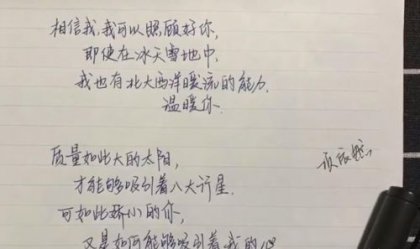 相信我,我可以照顾好你,
即使在冰天雪地中.
我也有北大西洋暖流的能力.
温暖你.
质量如此大的太阳,
才能够吸引着八大行星.
可如此娇小的你,
又是如何能够吸引着我的心